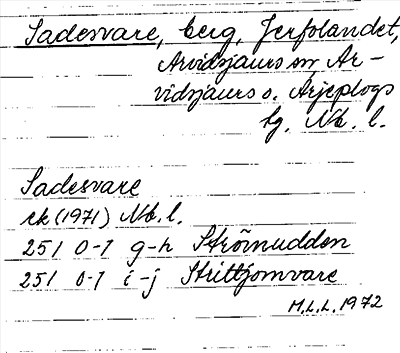 Sadesvare, berg, Jerfolandet,
Arvidsjaurs sn, Ar-
vidsjaurs o. Arjeplogs
tg, Nb. l.
Sadesvare
ek (1971) Nb. l.
25I 0-1 g-h Strömudden
25I 0-1 i-j Strittjomvare
M.L.L. 1972